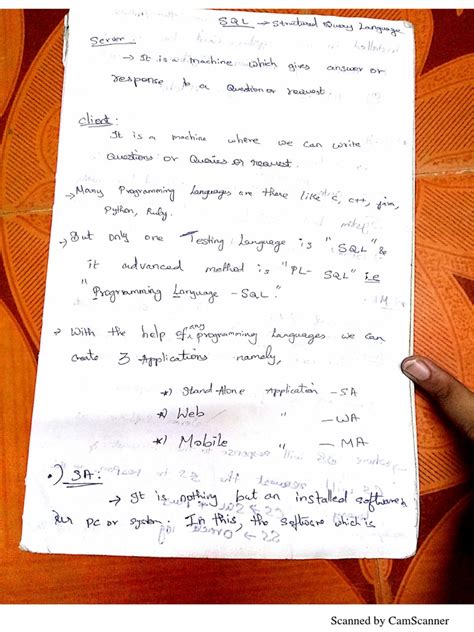 SQL → Structured Query Language
Server:
→ It is a machine which gives answer or
response to a Question or request.
client:
It is a machine where we can write
Questions or Queries or request.
→ Many Programming Languages are there like C, C++, java,
Python, Ruby.
→ But only one Testing Language is "SQL" &
it advanced method is "PL-SQL" i.e
"Programming Language - SQL".
→ With the help of any programming Languages we can
create 3 Applications namely,
*) Stand-Alone Application - SA
*) Web " - WA
*) Mobile " - MA
•) SA:
→ It is nothing but an installed software
PC or System. In this, the software which is
Scanned by CamScanner